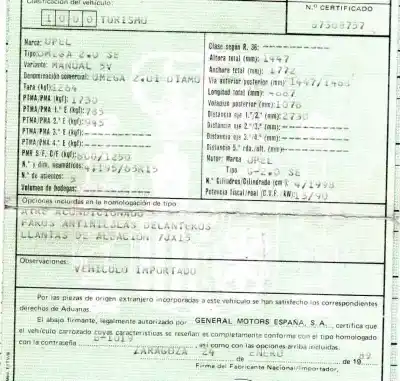 Clasificación del vehículo:
N.º CERTIFICADO
1 0 0 0 TURISMO
Marca: OPEL
Clase según R. 36:
Tipo: OMEGA 2.0 SE
Altura total (mm): 1447
Variante: MANUAL 5V
Anchura total (mm): 1772
Denominación comercial: OMEGA 2.0I DIAMO
Vía anterior/posterior (mm):
Tara (kgf): 1264
Longitud total (mm): 4687
PTMA/PMA (kgf): 1730
Voladizo posterior (mm): 1076
PTMA/PMA 1.º E (kgf): 785
Distancia eje 1.º/2.º (mm): 2730
PTMA/PMA 2.º E (kgf): 945
Distancia eje 2.º/3.º (mm):
PTMA/PMA 3.º E (kgf):
Distancia eje 3.º/4.º (mm):
PTMA/PMA 4.º E (kgf):
Distancia 5.ª rda./últ. (mm):
PMR S/F, C/F (kgf): 600/1250
Motor: Marca OPEL
N.º y dim. neumáticos: 4/195/65R15
Tipo
N.º de asientos: 5
N.º Cilindros/Cilindrada (cm³): 4/1998
Volumen de bodegas:
Potencia fiscal/real (C.V.F./kW): 13/90
Opciones incluidas en la homologación de tipo
AIRE ACONDICIONADO
FAROS ANTINIEBLAS DELANTEROS
LLANTAS DE ALEACION 7JX15
Observaciones:
VEHICULO IMPORTADO
Por las piezas de origen extranjero incorporadas a este vehículo se han satisfecho los correspondientes
derechos de Aduanas.
El abajo firmante, legalmente autorizado por GENERAL MOTORS ESPAÑA, S. A., certifica que
el vehículo carrozado cuyas características se reseñan es completamente conforme con el tipo homologado
con la contraseña B-1019, así como con las opciones arriba indicadas.
ZARAGOZA 24 de ENERO de 19 89
Firma del Fabricante Nacional/Importador,